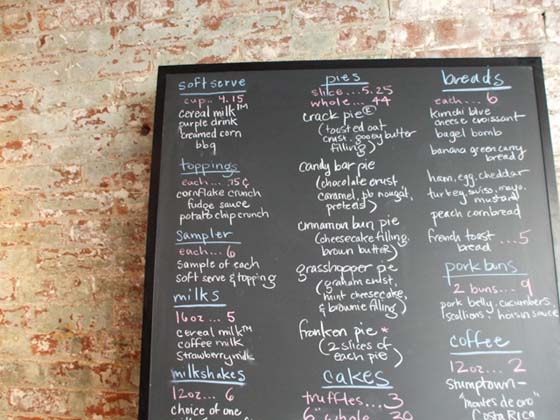 soft serve
cup.. 4.15
cereal milk™
purple drink
creamed corn
bbq
toppings
each... .75¢
cornflake crunch
fudge sauce
potato chip crunch
sampler
each... 6
sample of each
soft serve & topping
milks
16oz... 5
cereal milk™
coffee milk
strawberry milk
milkshakes
12oz... 6
choice of one
pies
slice... 5.25
whole... 44
crack pie®
(toasted oat
crust, gooey butter
filling)
candy bar pie
(chocolate crust
caramel, pb nougat,
pretzels)
cinnamon bun pie
(cheesecake filling,
brown butter)
grasshopper pie
(graham crust,
mint cheesecake,
& brownie filling)
franken pie *
(2 slices of
each pie)
cakes
truffles... 3
6" whole
breads
each... 6
kimchi blue
cheese croissant
bagel bomb
banana green curry
bread
ham, egg, cheddar
turkey, swiss, mayo,
mustard
peach cornbread
french toast ... 5
bread
pork buns
2 buns... 9
pork belly, cucumbers
scallions, hoisin sauce
coffee
12oz... 2
stumptown-
"montes de oro"
Costa Rica